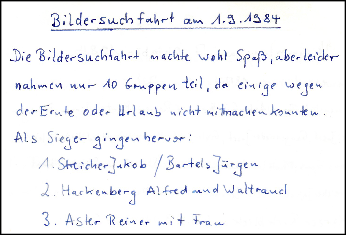 Bildersuchfahrt am 1.9.1984
Die Bildersuchfahrt machte wohl Spaß, aber leider
nahmen nur 10 Gruppen teil, da einige wegen
der Ernte oder Urlaub nicht mitmachen konnten.
Als Sieger gingen hervor:
1. Streicher Jakob / Bartels Jürgen
2. Hackenberg Alfred und Waltraud
3. Aster Reiner mit Frau